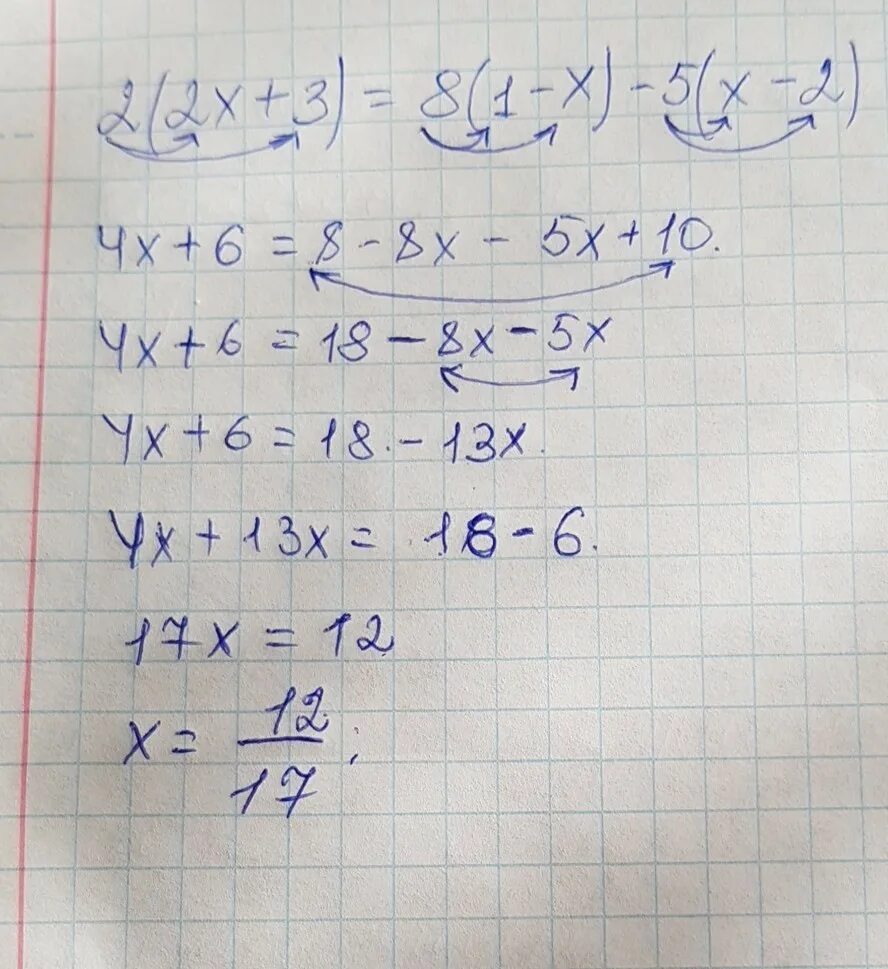 2(2x+3) = 8(1-x) -5(x-2)
4x+6 = 8 - 8x - 5x+10.
4x+6 = 18 - 8x - 5x
4x+6 = 18. - 13x.
4x+13x = 18 - 6.
17x = 12
x = 12/17;